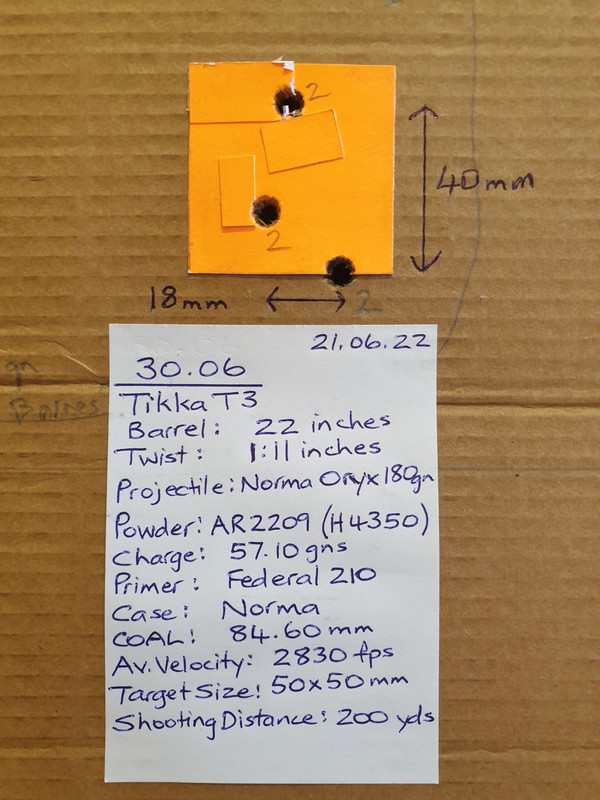 2
40mm
2
18mm
2
21.06.22
30.06
Tikka T3
Barrel: 22 inches
Twist: 1:11 inches
Projectile: Norma Oryx 180gn
Powder: AR2209 (H4350)
Charge: 57.10 gns
Primer: Federal 210
Case: Norma
COAL: 84.60 mm
Av. Velocity: 2830 fps
Target Size: 50x50 mm
Shooting Distance: 200 yds